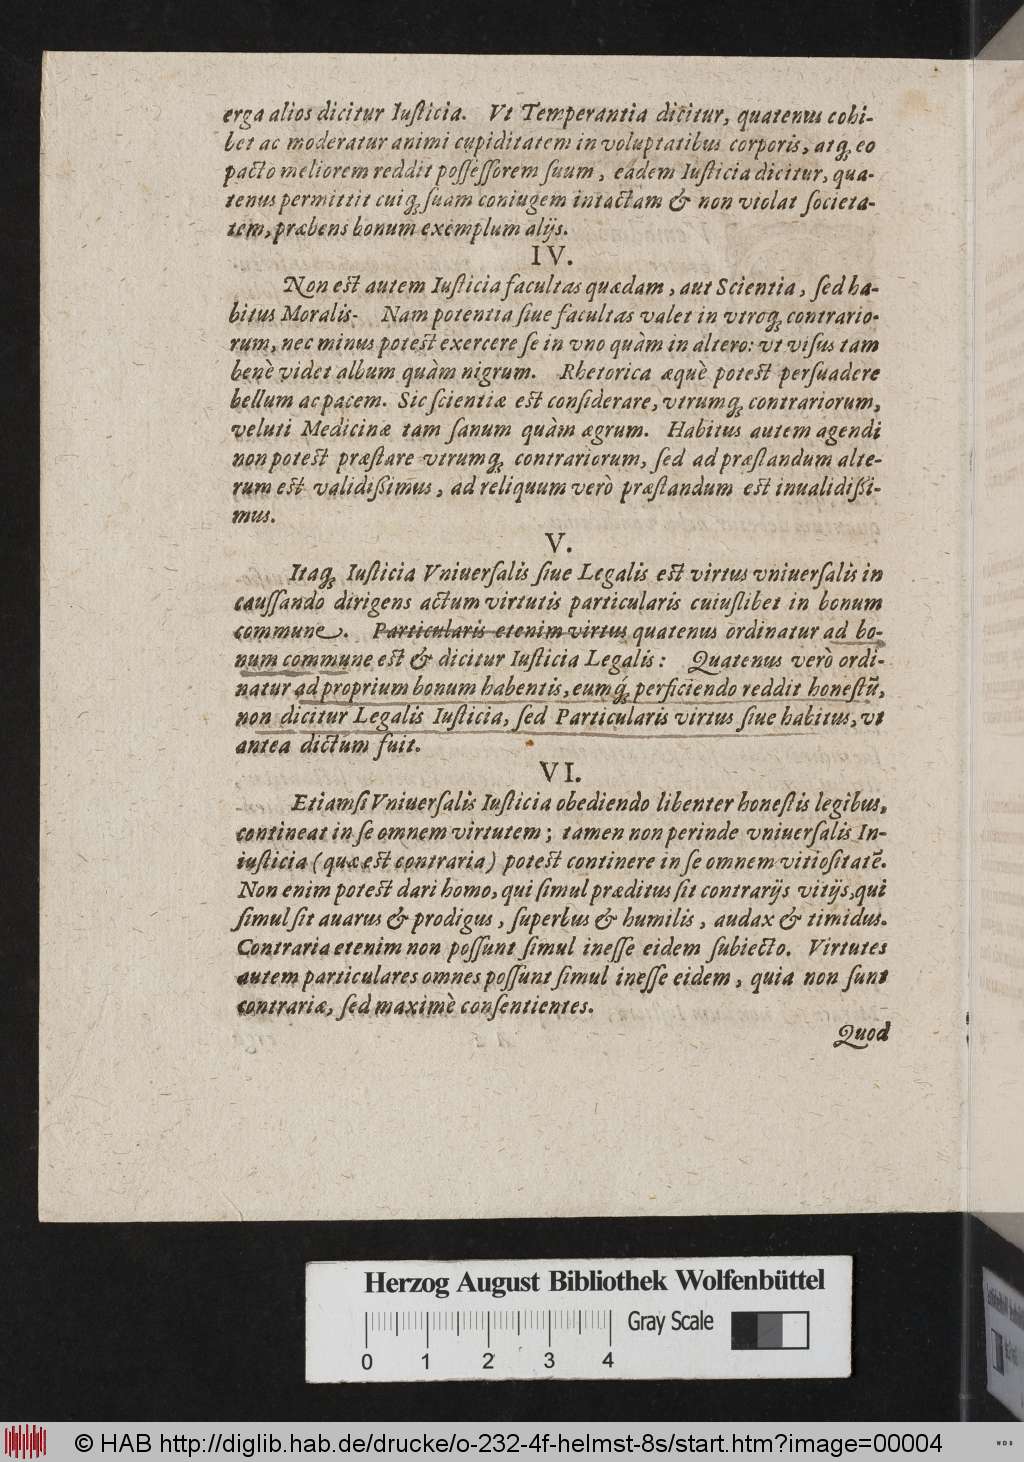 erga alios dicitur Iuſticia. Vt Temperantia dicitur, quatenus cohi-
bet ac moderatur animi cupiditatem in voluptatibus corporis, atq́; eo
pacto meliorem reddit poſſeſſorem ſuum, eadem Iuſticia dicitur, qua-
tenus permittit cuiq́; ſuam coniugem intactam & non violat ſocieta-
tem, præbens bonum exemplum alijs.
IV.
Non est autem Iuſticia facultas quædam, aut Scientia, ſed ha-
bitus Moralis. Nam potentia ſiue facultas valet in vtroq́; contrario-
rum, nec minus potest exercere ſe in vno quàm in altero: vt viſus tam
benè videt album quàm nigrum. Rhetorica æquè potest perſuadere
bellum ac pacem. Sic ſcientiæ est conſiderare, vtrumq́; contrariorum,
veluti Medicinæ tam ſanum quàm ægrum. Habitus autem agendi
non potest præſtare vtrumq́; contrariorum, ſed ad præſtandum alte-
rum est validiſſimus, ad reliquum verò præſtandum est inualidiſſi-
mus.
V.
Itaq́; Iuſticia Vniuerſalis ſiue Legalis est virtus vniuerſalis in
cauſſando dirigens actum virtutis particularis cuiuſlibet in bonum
commune. Particularis etenim virtus quatenus ordinatur ad bo-
num commune est & dicitur Iuſticia Legalis: Quatenus verò ordi-
natur ad proprium bonum habentis, eumq́; perficiendo reddit honeſtū,
non dicitur Legalis Iuſticia, ſed Particularis virtus ſiue habitus, vt
antea dictum fuit.
VI.
Etiamſi Vniuerſalis Iuſticia obediendo libenter honeſtis legibus,
contineat in ſe omnem virtutem; tamen non perinde vniuerſalis In-
iuſticia (quæ est contraria) potest continere in ſe omnem vitioſitatē.
Non enim potest dari homo, qui ſimul præditus ſit contrarijs vitijs, qui
ſimul ſit auarus & prodigus, ſuperbus & humilis, audax & timidus.
Contraria etenim non poſſunt ſimul ineſſe eidem ſubiecto. Virtutes
autem particulares omnes poſſunt ſimul ineſſe eidem, quia non ſunt
contrariæ, ſed maximè conſentientes.
Quod
Herzog August Bibliothek Wolfenbüttel
Gray Scale
0 1 2 3 4
© HAB http://diglib.hab.de/drucke/o-232-4f-helmst-8s/start.htm?image=00004